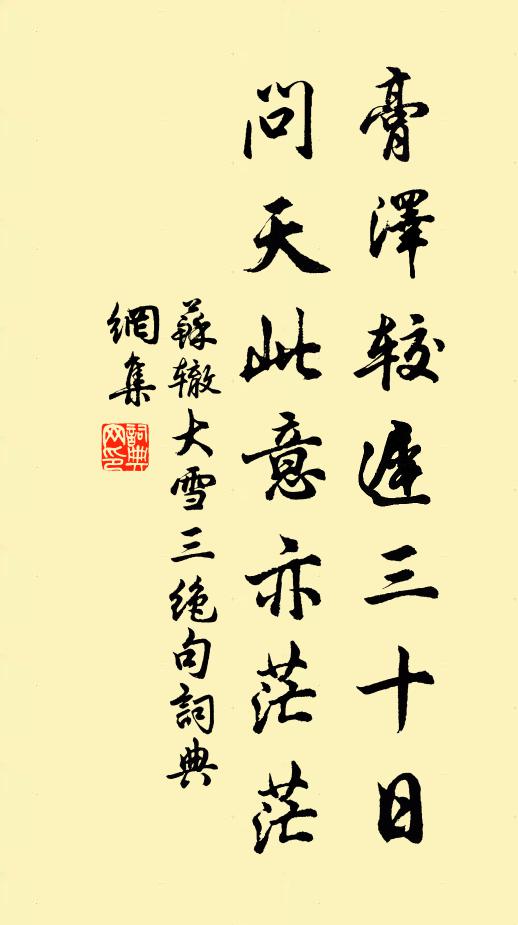 膏澤较遲三十日
問天此意亦茫茫
蘇辙大雪三绝句詞典
網集
詞典
网印